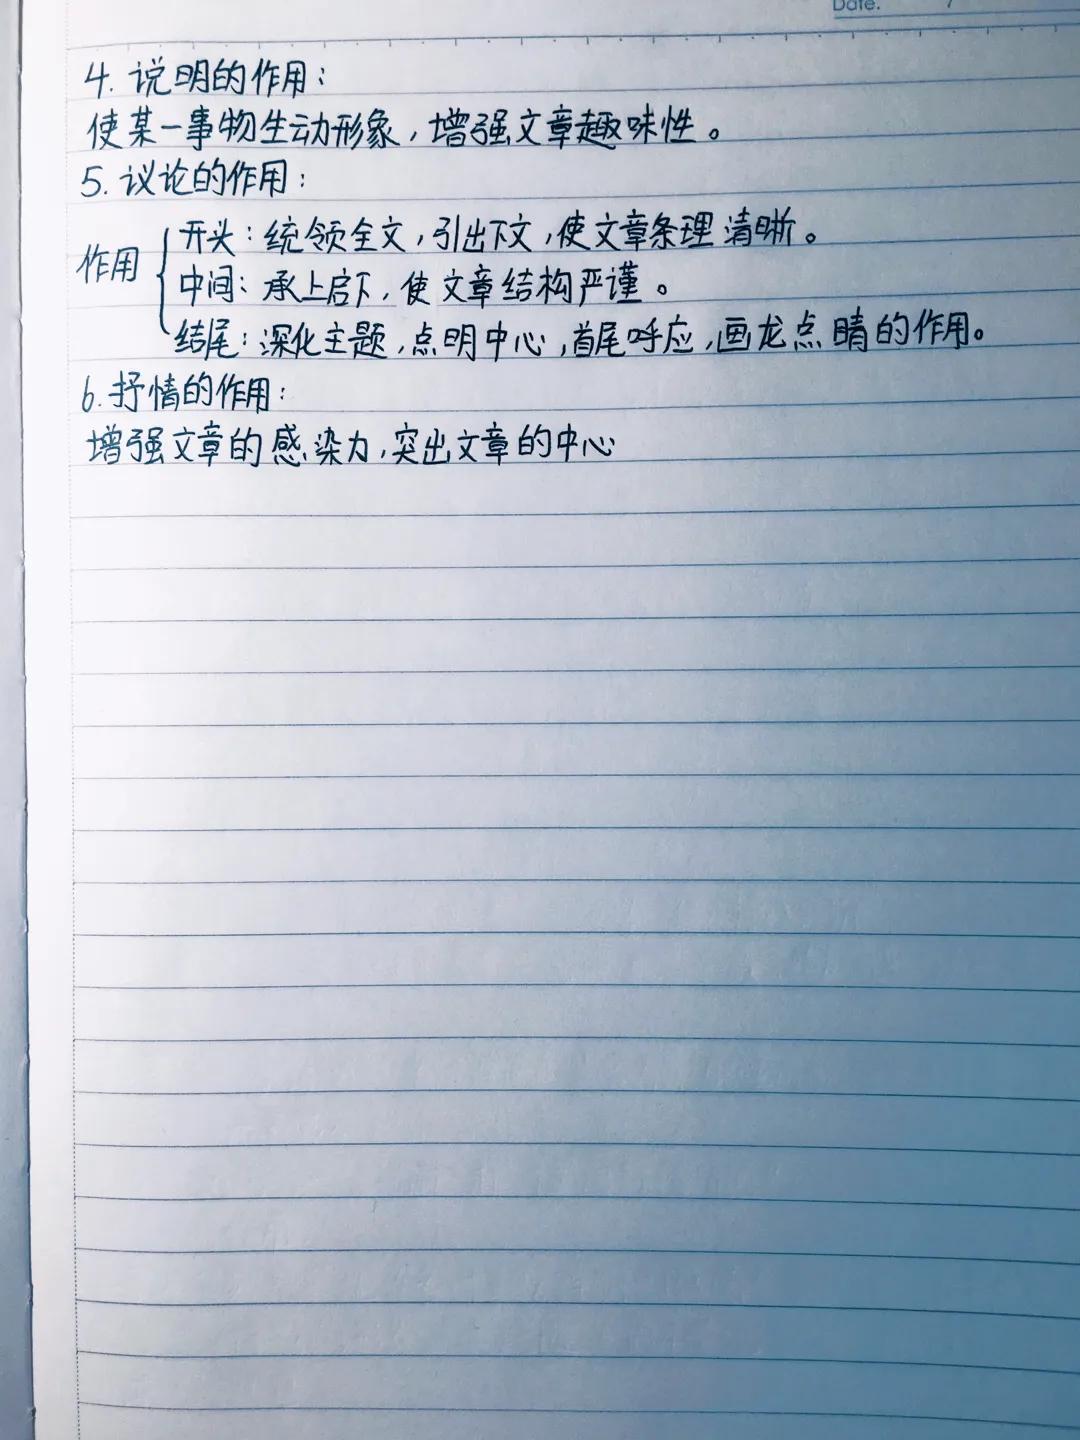 Date.
4. 说明的作用：
使某一事物生动形象，增强文章趣味性。
5. 议论的作用：
作用
开头：统领全文，引出下文，使文章条理清晰。
中间：承上启下，使文章结构严谨。
结尾：深化主题，点明中心，首尾呼应，画龙点睛的作用。
6. 抒情的作用：
增强文章的感染力，突出文章的中心